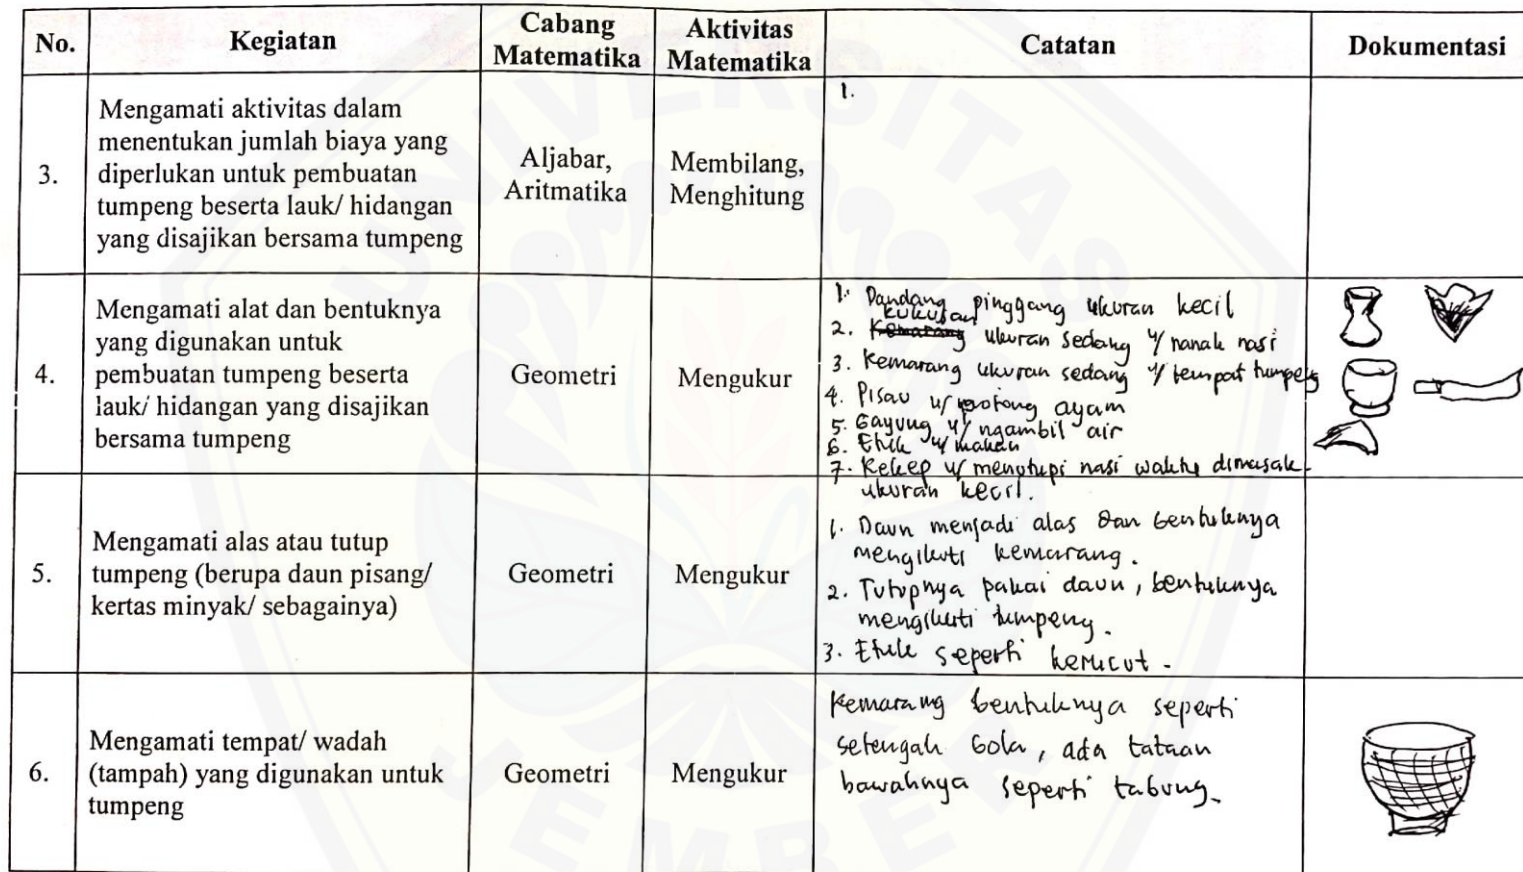 No. Kegiatan Cabang Matematika Aktivitas Matematika Catatan Dokumentasi
3.
Mengamati aktivitas dalam
menentukan jumlah biaya yang
diperlukan untuk pembuatan
tumpeng beserta lauk/ hidangan
yang disajikan bersama tumpeng
Aljabar,
Aritmatika
Membilang,
Menghitung
1.
4.
Mengamati alat dan bentuknya
yang digunakan untuk
pembuatan tumpeng beserta
lauk/ hidangan yang disajikan
bersama tumpeng
Geometri
Mengukur
1. Dandang pinggang ukuran kecil
2. kukusan ukuran sedang u/ nanak nasi
3. Kemarang ukuran sedang u/ tempat tumpeng
4. Pisau u/ motong ayam
5. Gayung u/ ngambil air
6. Ethik u/ makan
7. Kekep u/ menutupi nasi waktu dimasak
ukuran kecil.
5.
Mengamati alas atau tutup
tumpeng (berupa daun pisang/
kertas minyak/ sebagainya)
Geometri
Mengukur
1. Daun menjadi alas dan bentuknya
mengikuti kemarang.
2. Tutupnya pakai daun, bentuknya
mengikuti tumpeng.
3. Ethik seperti kerucut.
6.
Mengamati tempat/ wadah
(tampah) yang digunakan untuk
tumpeng
Geometri
Mengukur
Kemarang bentuknya seperti
setengah bola, ada tataan
bawahnya seperti tabung.
UNIVERSITAS
JEMBER